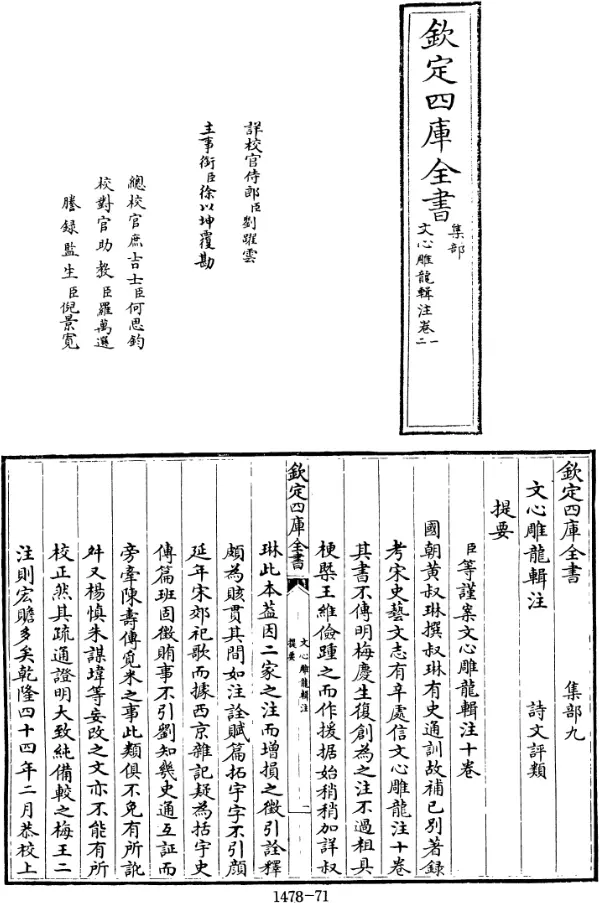 欽定四庫全書
集部
文心雕龍輯注卷一
二
詳校官侍郎臣劉躍雲
主事銜臣徐以坤覆勘
總校官庶吉士臣何思鈞
校對官助教臣羅萬選
謄錄監生臣倪景寛
欽定四庫全書 集部九
文心雕龍輯注 詩文評類
提要
臣等謹案文心雕龍輯注十卷
國朝黄叔琳撰叔琳有史通訓故補已别著録
考宋史藝文志有辛處信文心雕龍注十卷
其書不傳明梅慶生復創為之注不過粗具
梗槩王維儉踵之而作援据始稍稍加詳叔
欽定四庫全書
文心雕龍輯注
提要
琳此本葢因二家之注而增損之徵引詮釋
頗為賅貫其間如注詮賦篇拓宇字不引顔
延年宋郊祀歌而據西京雜記疑為括宇史
傳篇班固徵賄事不引劉知幾史通互証而
旁牽陳壽傳覓米之事此類俱不免有所訛
舛又楊慎朱謀㙔等妄改之文亦不能有所
校正然其疏通證明大致純備較之梅王二
注則宏贍多矣乾隆四十四年二月恭校上
1478-71